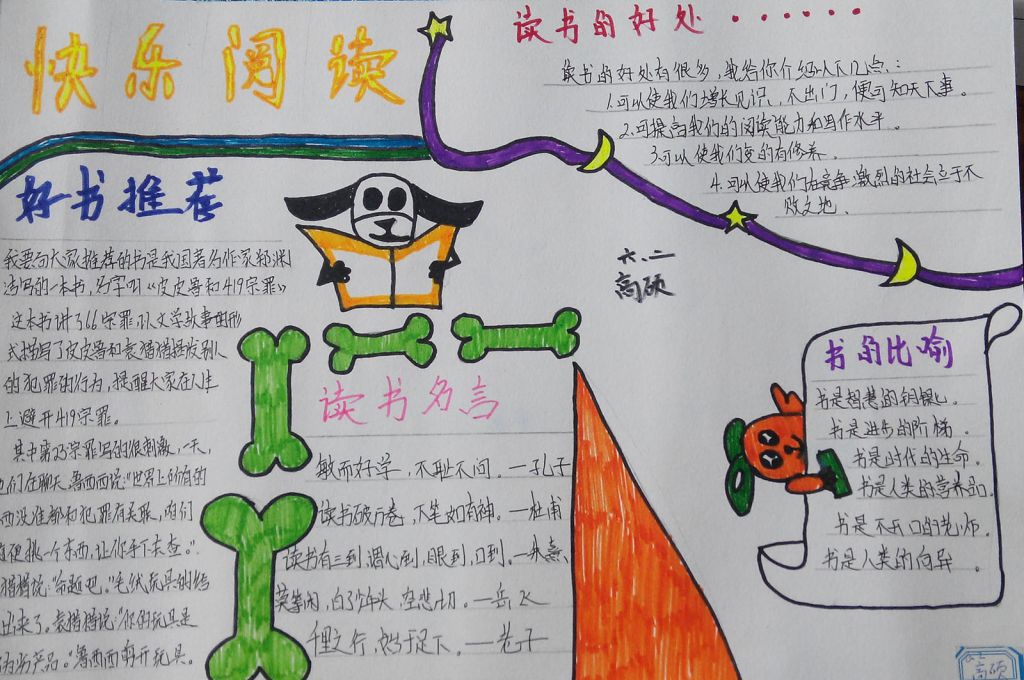 快乐阅读
读书的好处······
读书的好处有很多,我给你介绍以下几点:
1.可以使我们增长见识,不出门,便可知天下事。
2.可提高我们的阅读能力和写作水平。
3.可以使我们变的有修养。
4.可以使我们在竞争激烈的社会立于不
败之地。
好书推荐
我要向大家推荐的书是我国著名作家
写的一本书,名字叫《皮皮鲁和419宗罪》
这本书讲了66宗罪,以文学故事的形
式描写了皮皮鲁和袁猎猎揭发别人
的犯罪的行为,提醒大家在人生
上避开419宗罪。
其中第23宗罪写的很刺激,一天,
他们在聊天,鲁西西说:“世界上所有的
西没准都和犯罪有关联,咱们
便挑一个东西,让你手下去查。”
猎猎说:“命题吧。”毛绒玩具的结
出来了。袁猎猎说:“你的玩具是
产品。”鲁西西剪开玩具。
六、二
高硕
读书名言
敏而好学,不耻下问。—孔子
读书破万卷,下笔如有神。—杜甫
读书有三到,谓心到,眼到,口到。—朱熹
莫等闲,白了少年头,空悲切。—岳飞
千里之行,始于足下。—老子
书的比喻
书是智慧的钥匙。
书是进步的阶梯。
书是时代的生命。
书是人类的营养品。
书是不开口的老师。
书是人类的向导。
六二
高硕